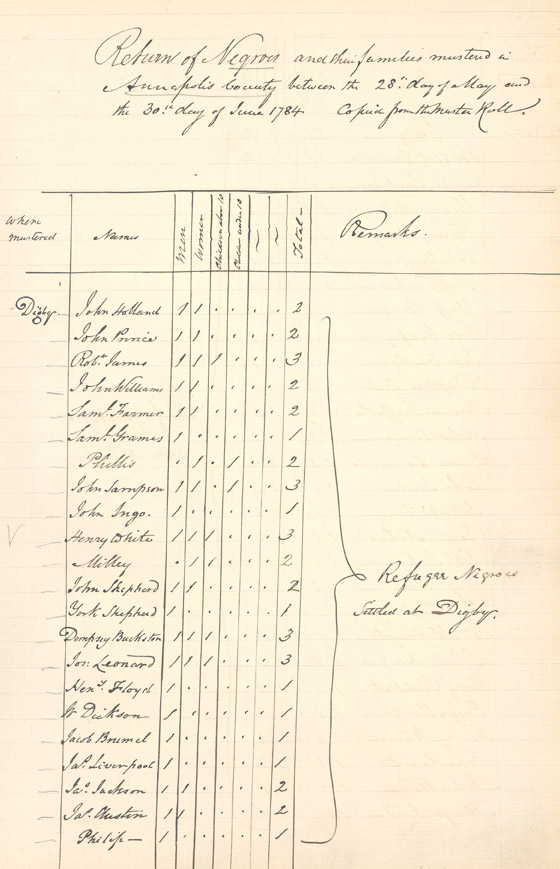 Return of Negroes and their families mustered in
Annapolis County between the 28th day of May and
the 30th day of June 1784 Copied from the Muster Roll.
Where mustered Names Men Women Children above 10 Children under 10 Total Remarks.
Digby John Holland 1 1 . . . . 2
John Prince 1 1 . . . . 2
Robt. James 1 1 1 . . . 3
John Williams 1 1 . . . . 2
Saml. Farmer 1 1 . . . . 2
Saml. Grames 1 . . . . . 1
Phillis . 1 . 1 . . 2
John Sampson 1 1 . 1 . . 3
John Ingo. 1 . . . . . 1
Henry White 1 1 1 . . . 3
Milley . 1 1 . . . 2
John Shepherd 1 1 . . . . 2
York Shepherd 1 . . . . . 1
Dempsey Buckston 1 1 1 . . . 3
Jos: Leonard 1 1 1 . . . 3
Heny. Floyd 1 . . . . . 1
Dickson 1 . . . . . 1
Jacob Brumel 1 . . . . . 1
Jas. Liverpool 1 . . . . . 1
Jas. Jackson 1 1 . . . . 2
Jas. Austin 1 1 . . . . 2
Philip 1 . . . . . 1
Refugee Negroes
Settled at Digby.